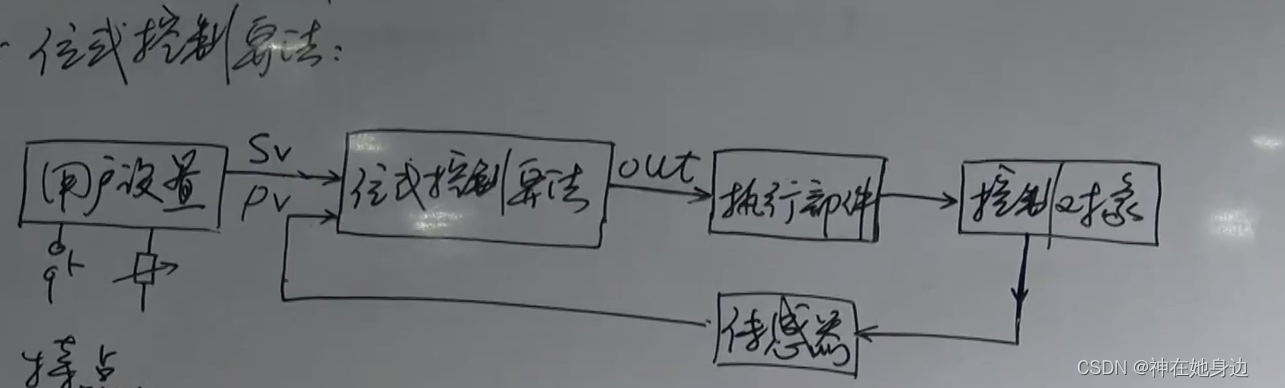 位式控制算法:
用户设置
SV
PV
位式控制算法
OUT
执行部件
控制对象
传感器
CSDN @神在她身边